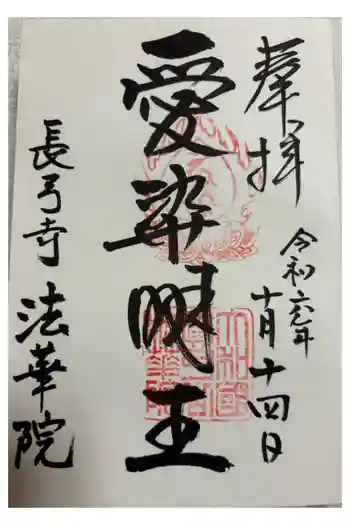 奉拝
令和六年
十月十四日
愛染明王
長弓寺 法華院